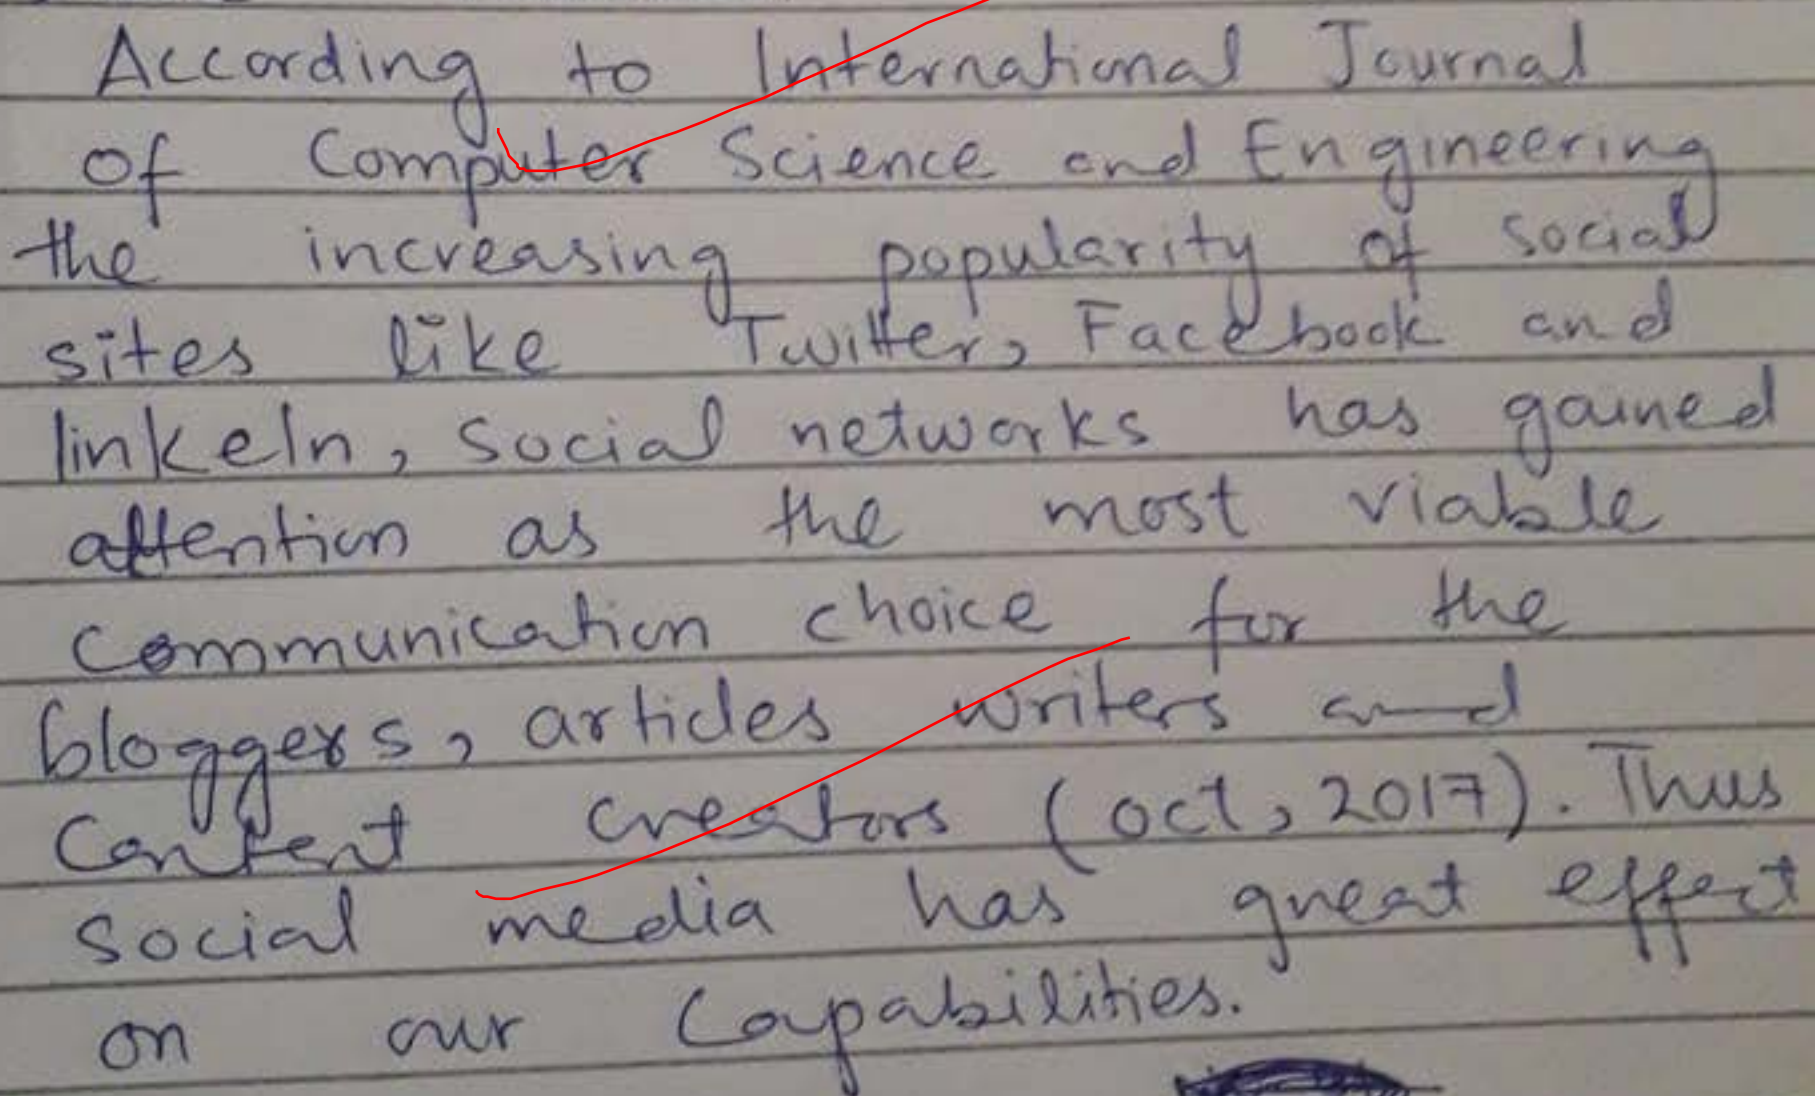 According to International Journal
of Computer Science and Engineering
the increasing popularity of social
sites like Twitter, Facebook and
linkeIn, social networks has gained
attention as the most viable
communication choice for the
bloggers, articles writers and
content creators (oct, 2017). Thus
social media has great effect
on our capabilities.